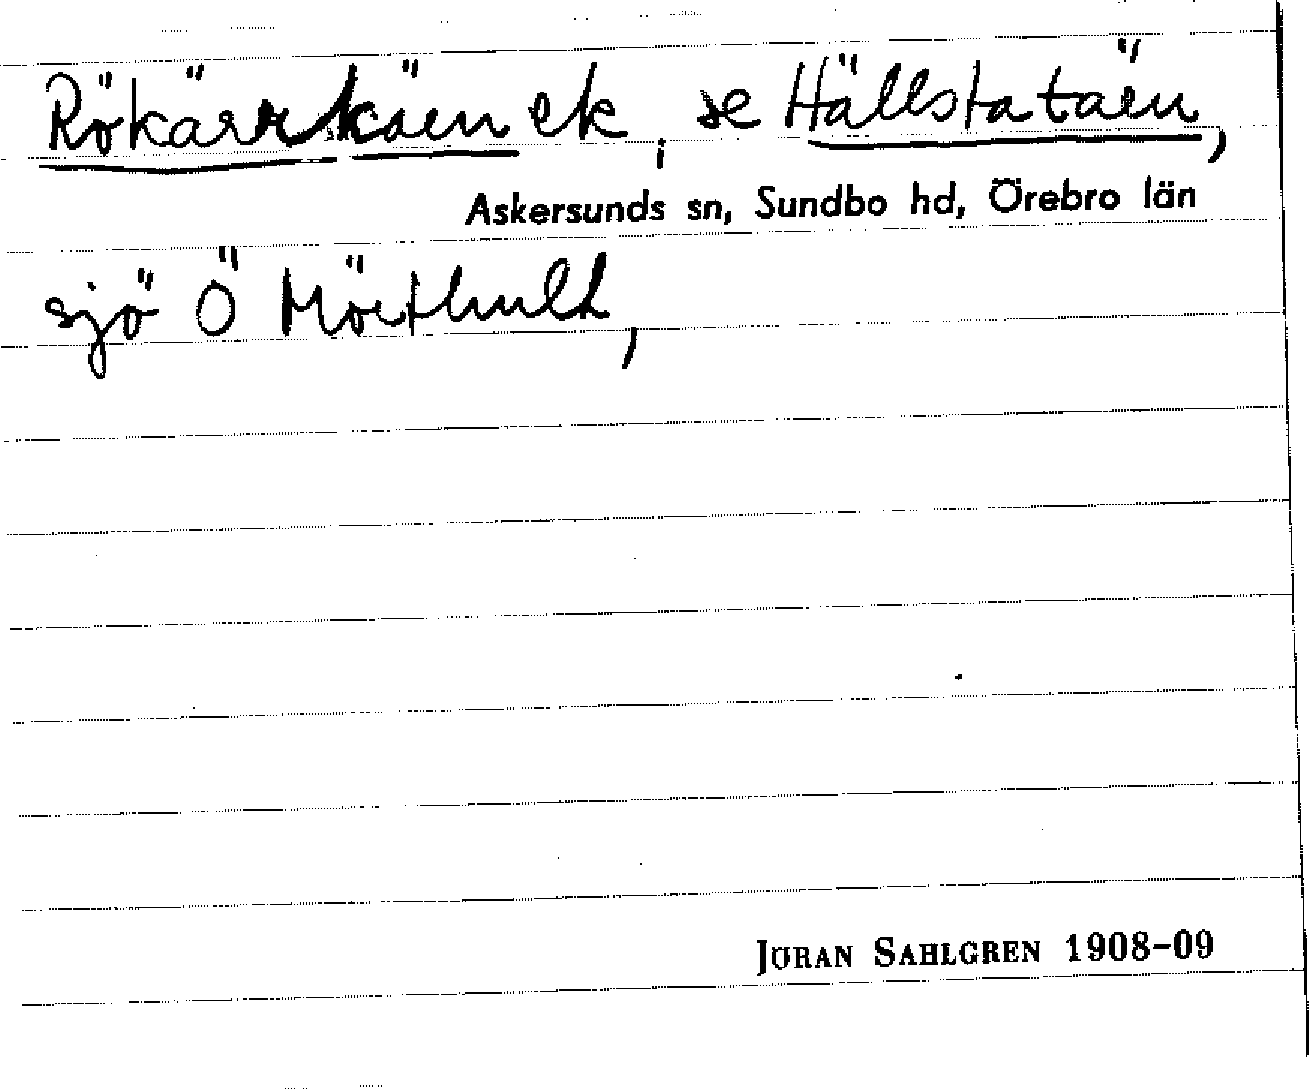 Rökärrkärn ek, se Hällstatärn,
Askersunds sn, Sundbo hd, Örebro län
sjö Ö Mörthult,
JÖRAN SAHLGREN 1908-09